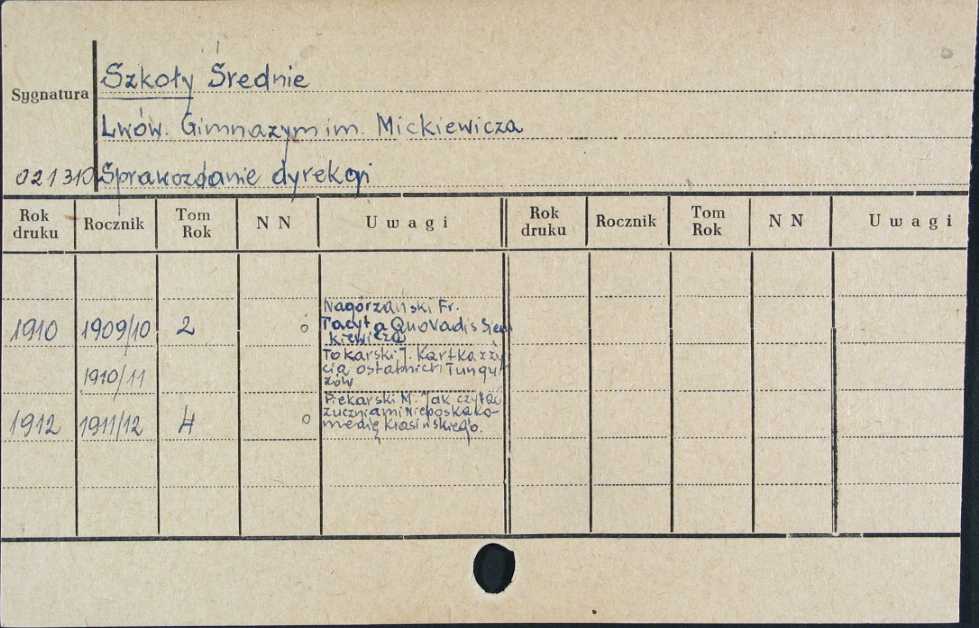 Szkoły Średnie
Sygnatura
Lwów. Gimnazym im. Mickiewicza
021310 Sprawozdanie dyrekcji
Rok druku Rocznik Tom Rok N N Uwagi Rok druku Rocznik Tom Rok N N Uwagi
Nagórzański Fr.
1910 1909/10 2 o Tacyt a Quo Vadis Sien
kiewicza
Tokarski J. Kartka z ży
1910/11 cia ostatnich Tungu
zów
Piekarski M. Jak czytać
1912 1911/12 4 o z uczniami Nieboską ko-
medię Krasińskiego.